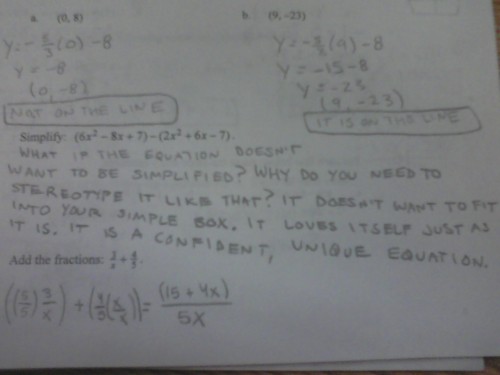 a. (0, 8) b. (9, -23)
y = -5/3 (0) - 8
y = -8
(0, -8)
NOT ON THE LINE
y = -5/3 (9) - 8
y = -15 - 8
y = -23
(9, -23)
IT IS ON THE LINE
Simplify: (6x² – 8x + 7) – (2x² + 6x – 7).
WHAT IF THE EQUATION DOESN'T
WANT TO BE SIMPLIFIED? WHY DO YOU NEED TO
STEREOTYPE IT LIKE THAT? IT DOESN'T WANT TO FIT
INTO YOUR SIMPLE BOX. IT LOVES ITSELF JUST AS
IT IS. IT IS A CONFIDENT, UNIQUE EQUATION.
Add the fractions: 3/x + 4/5.
((5/5) 3/x) + (4/5 (x/x)) = (15 + 4x)/5x